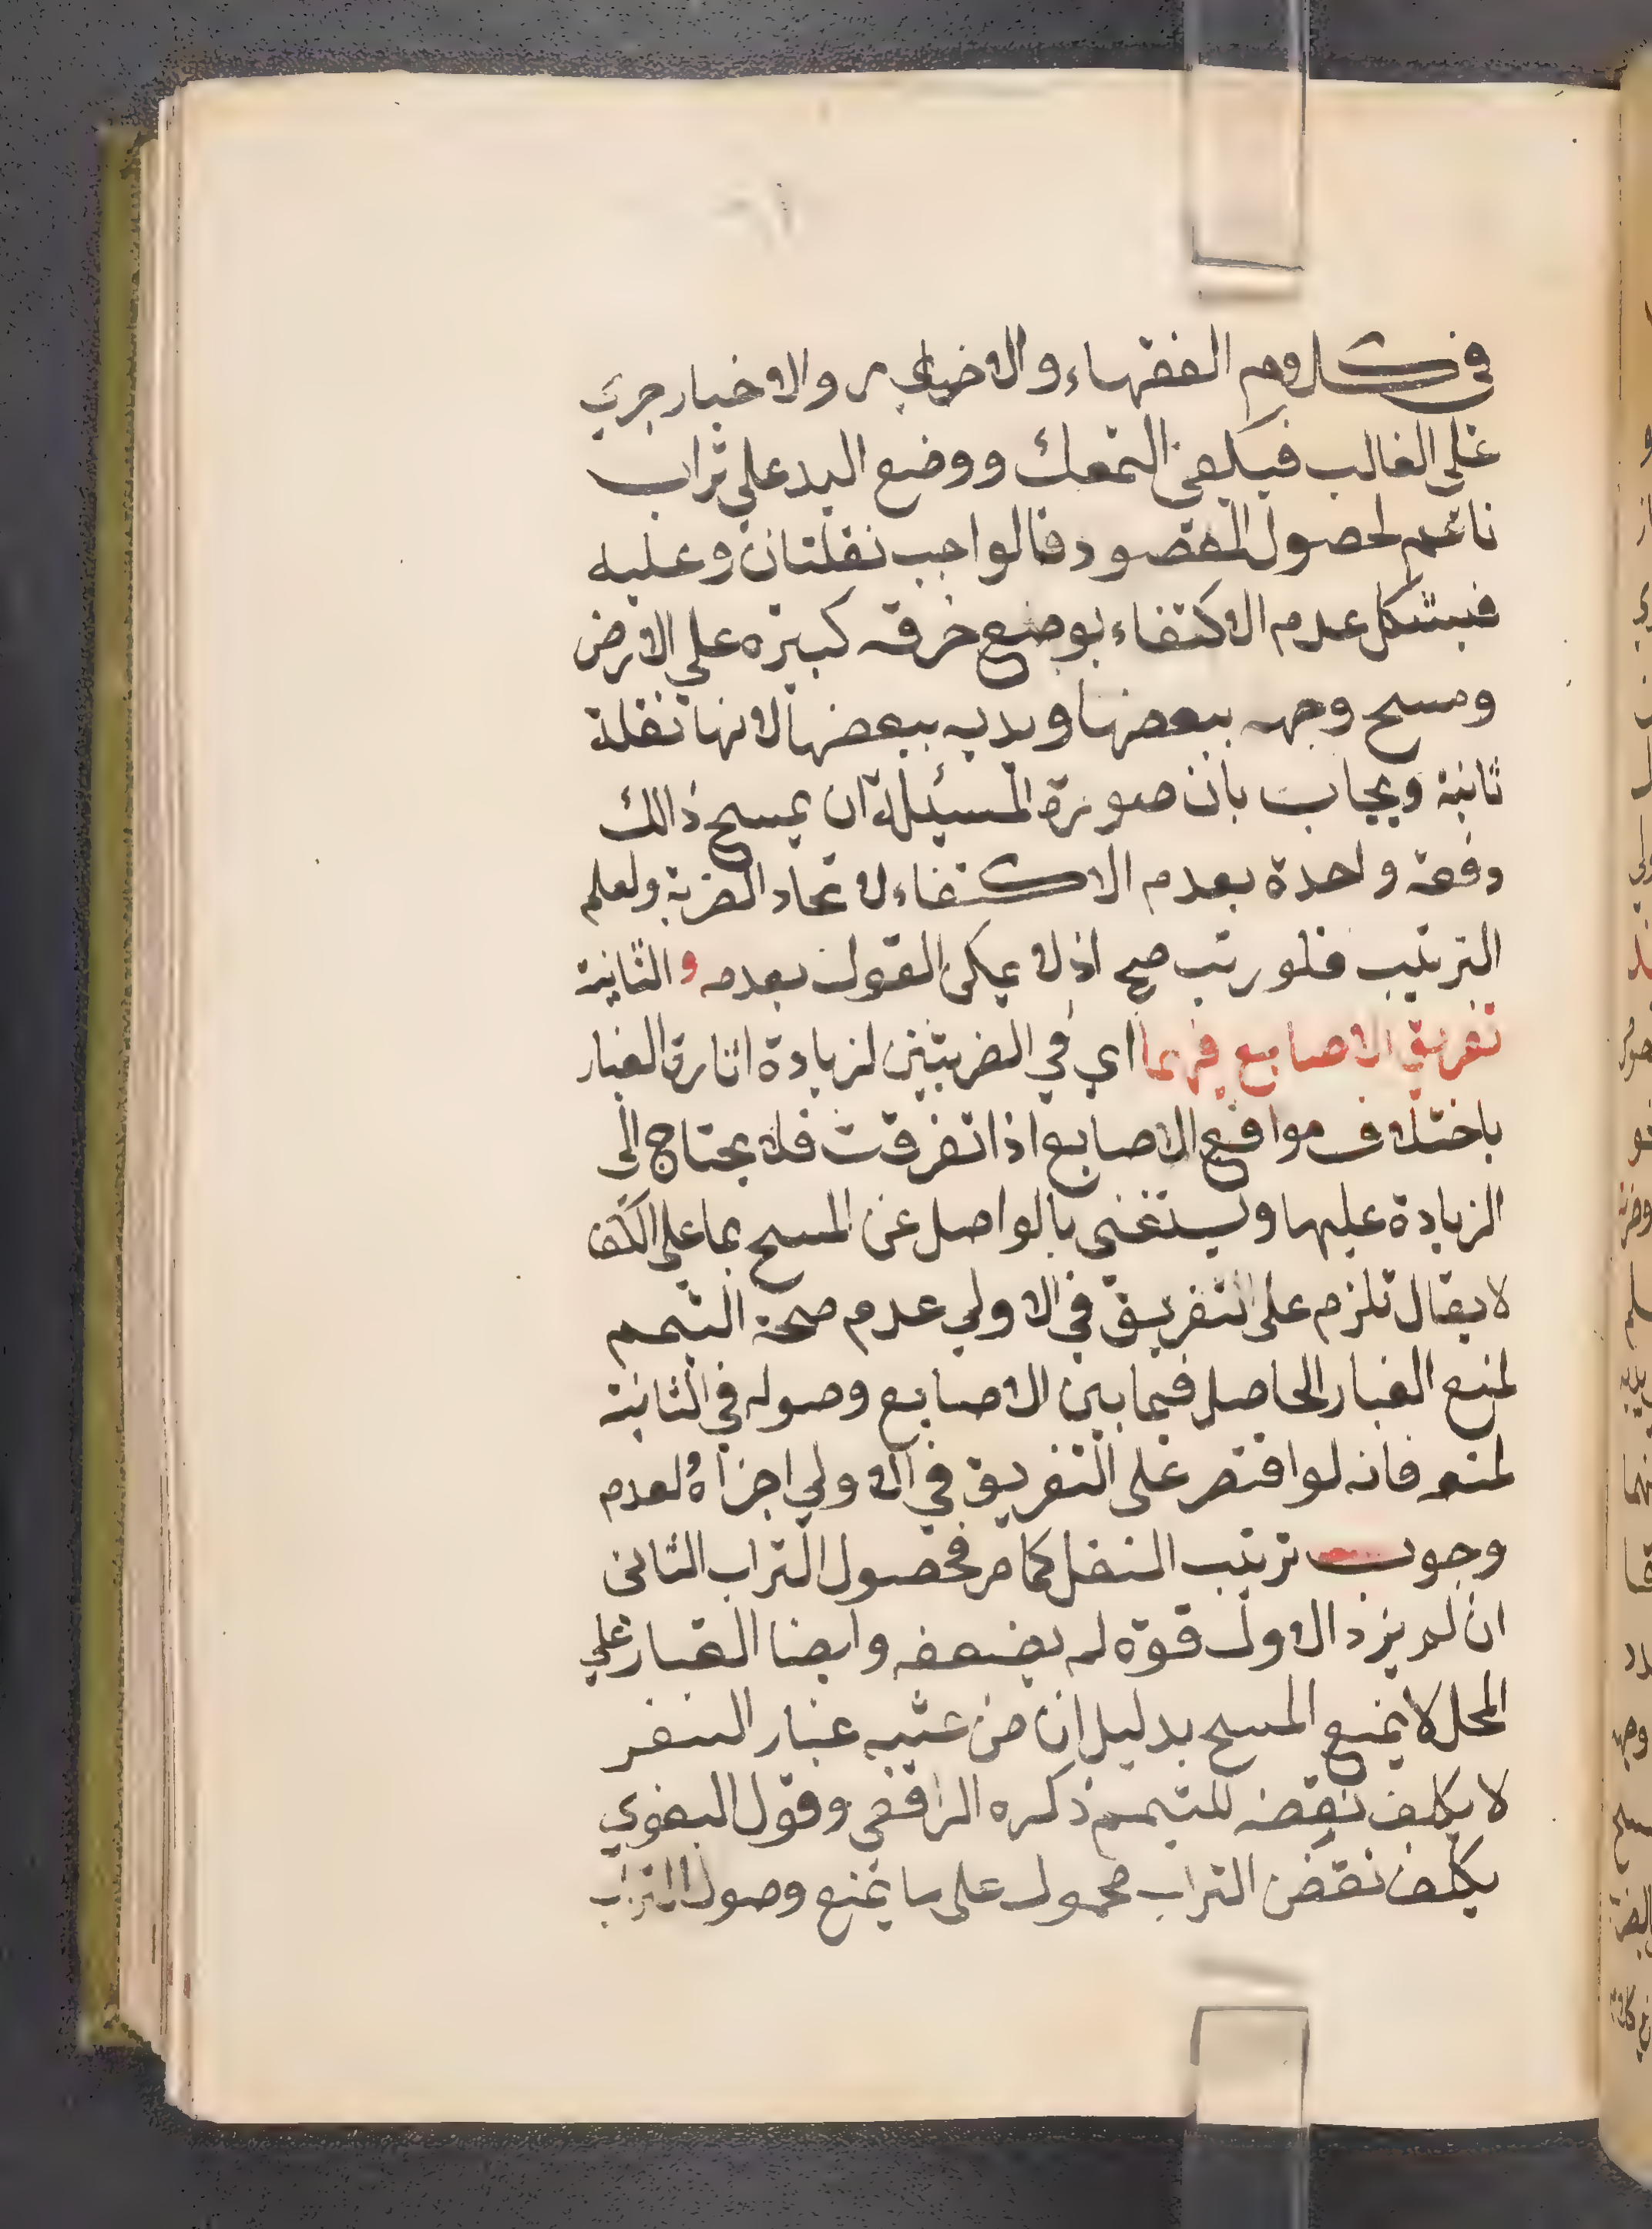 في كلام الفقهاء والاخبار والاخبار جرت
على الغالب فيكفي التمعك ووضع اليد على تراب
ناعم لحصول المقصود فالواجب نقلتان وعليه
فيشكل عدم الاكتفاء بوضع خرقه كبيره على الارض
ومسح وجهه ببعضها ويديه ببعضها لانها نقلة
ثانية ويجاب بان صورة المسئلة ان يمسح ذالك
دفعة واحدة بعدم الاكتفاء لاتحاد الضربة ولعلم
الترتيب فلو رتب صح اذ لا يمكن القول بعدمه والثانية
تفريق الاصابع فيهما اي في الضربتين لزيادة اثارة الغبار
باختلاف مواقع الاصابع اذا تفرقت فلا يحتاج الى
الزيادة عليها ويستغنى بالواصل عن المسح بما على الكف
لا يقال تلزم على التفريق في الاولى عدم صحة التيمم
لمنع الغبار الحاصل فيما بين الاصابع وصوله في الثانية
لمنعه فانه لو اقتصر على التفريق في الاولي اجزاه لعدم
وجوب ترتيب النقل كما مر فحصول التراب الثانى
ان لم يزد الاول قوة لم يضعفه وايضا الغبار على
المحل لا يمنع المسح بدليل ان من غشيه غبار السفر
لا يكلف نفضه للتيمم ذكره الرافعي وقول البغوي
يكلف نفض التراب محمول على ما يمنع وصول التراب